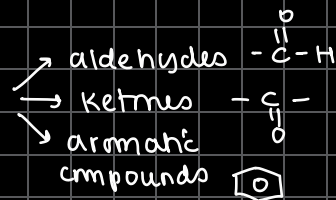 aldehydes -C-H
O
ketones -C-
O
aromatic
compounds